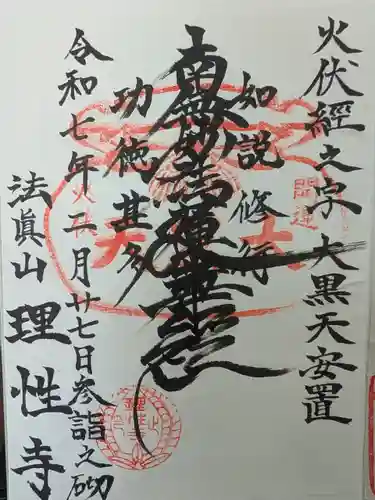 火伏經之字大黒天安置
如説修行
南無妙法蓮華経
功徳甚多
令和七年二月廿七日参詣之砌
法眞山理性寺
開運